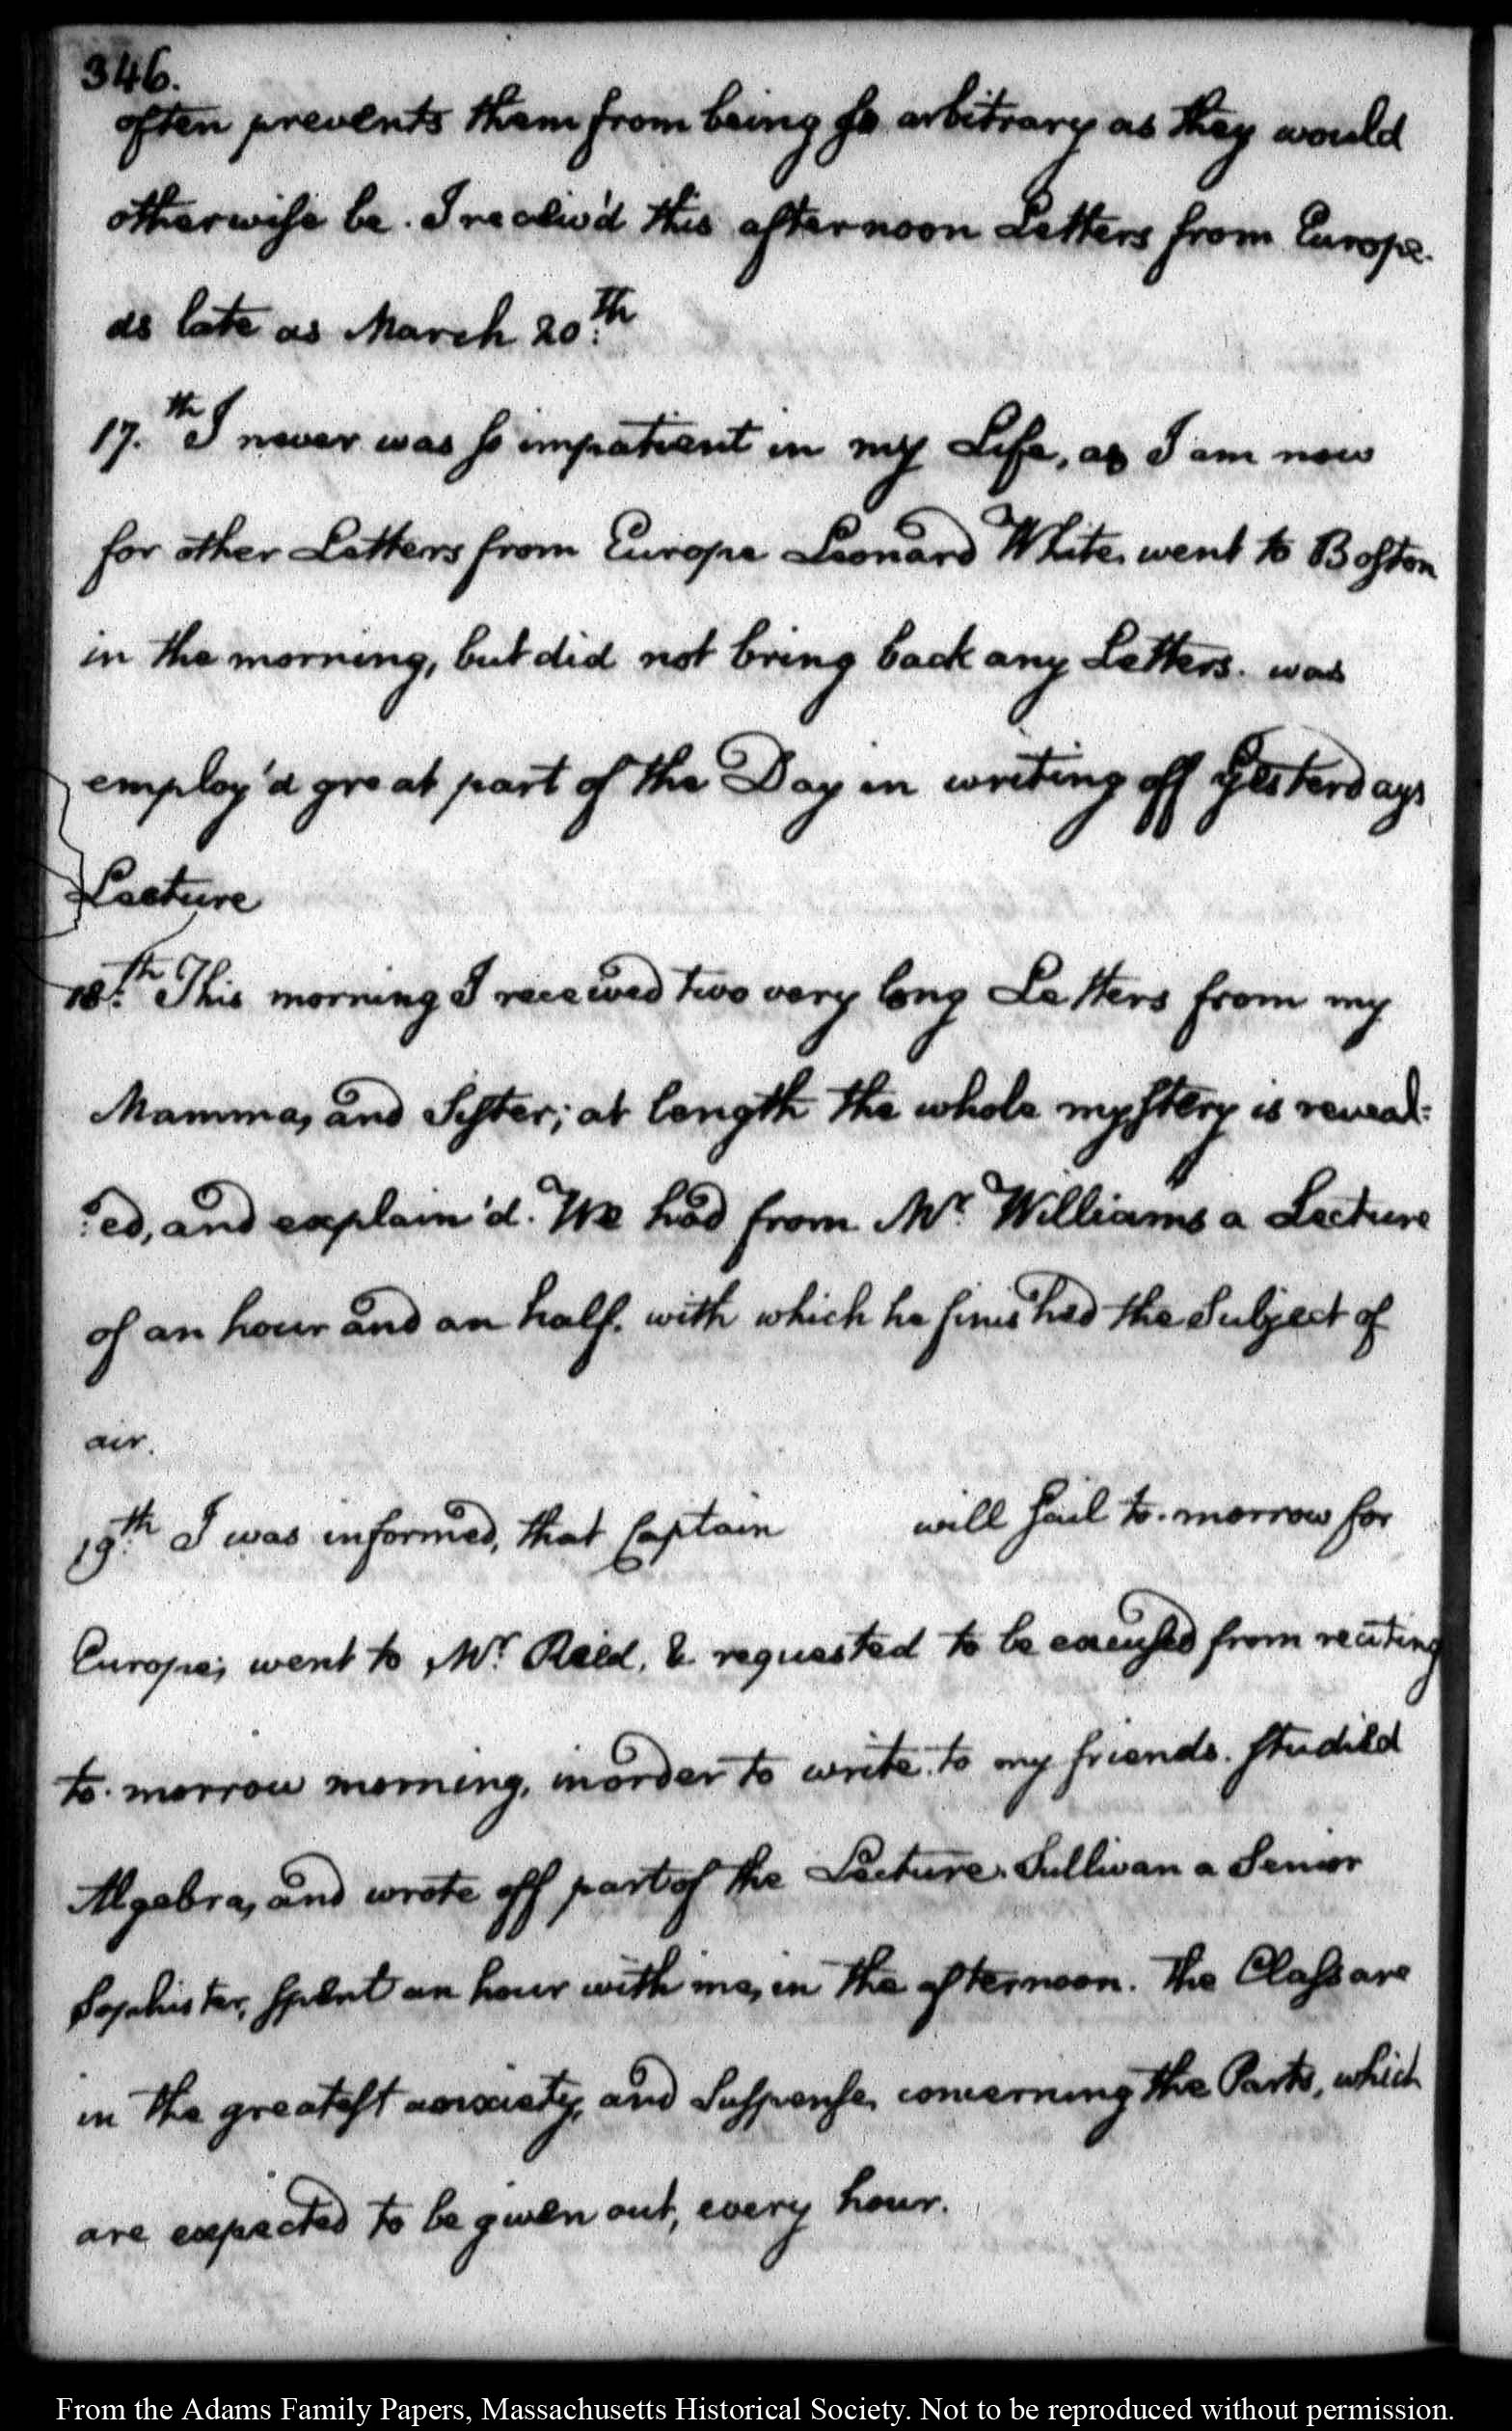 346.
often prevents them from being so arbitrary as they would
otherwise be. I receiv'd this afternoon Letters from Europe.
as late as March 20:th
17.th I never was so impatient in my Life, as I am now
for other Letters from Europe Leonard White, went to Boston
in the morning, but did not bring back any Letters. was
employ'd great part of the Day in writing off Yesterdays
Lecture
18:th This morning I received two very long Letters from my
Mamma, and Sister; at length the whole mystery is reveal:
:ed, and explain'd. We had from Mr. Williams a Lecture
of an hour and an half. with which he finished the Subject of
air.
19:th I was informed, that Captain will sail to-morrow for
Europe; went to Mr. Read, & requested to be excused from reciting
to-morrow morning, in order to write to my friends. studied
Algebra, and wrote off part of the Lecture. Sullivan a Senior
Sophister, spent an hour with me, in the afternoon. The Class are
in the greatest anxiety, and Suspense, concerning the Parts, which
are expected to be given out, every hour.
From the Adams Family Papers, Massachusetts Historical Society. Not to be reproduced without permission.